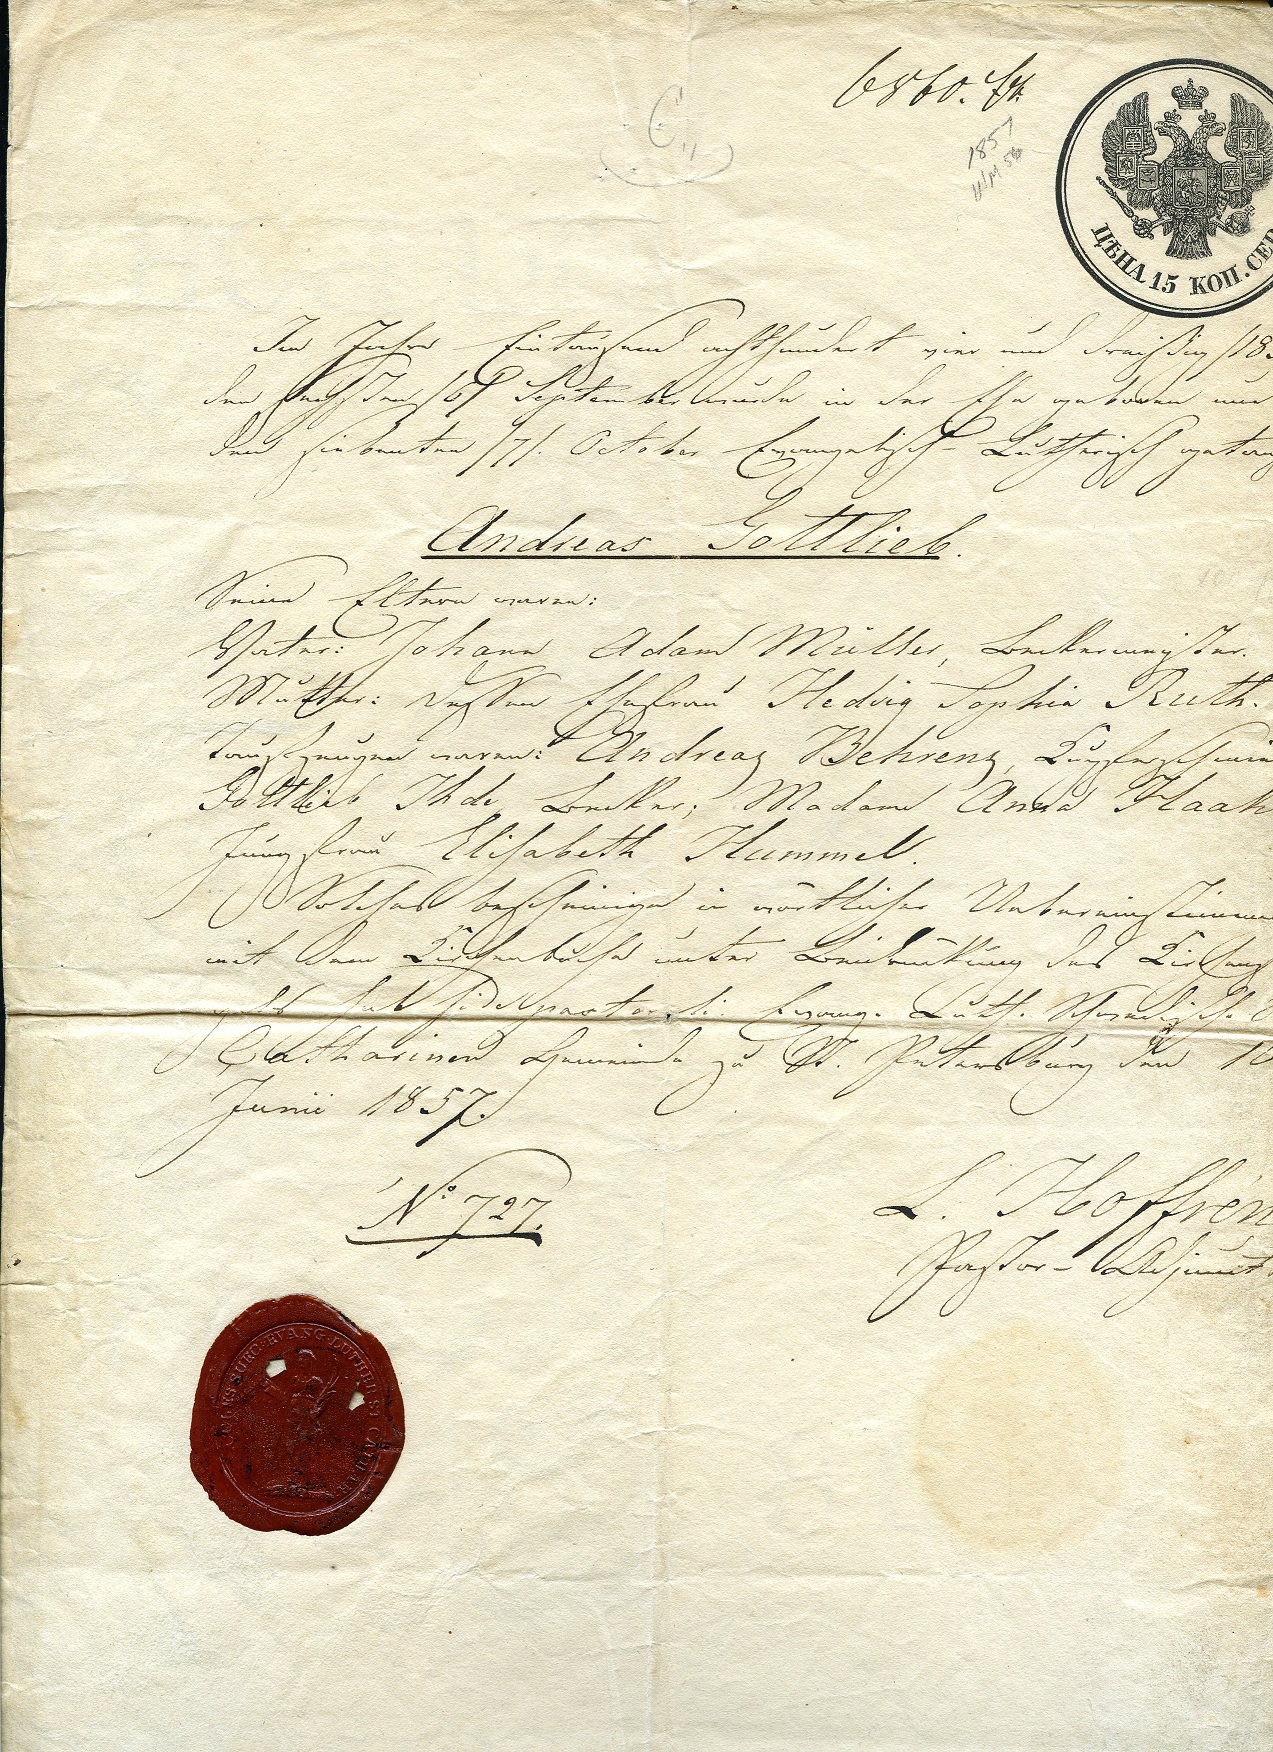 6860.
1857
ЦѢНА 15 КОП. СЕР
Im Jahre Eintausend achthundert vier und dreißig /18
den sechsten /6/ September wurde in der Ehe geboren und
den siebenten /7/. October Evangelisch-Lutherisch getau
Andreas Gottlieb.
Seine Eltern waren:
Vater: Johann Adam Müller, Beckermeister.
Mutter: dessen Ehefrau Hedvig Sophia Ruth.
Taufzeugen waren: Andreas Behrens, Kupferschmi
Gottlieb Ihde, Becker; Madame Anna Haak
Jungfrau Elisabeth Hummel.
Solches bescheinige in wörtlicher Uebereinstimmu
mit dem Kirchenbuche unter Beidrückung des Kirchens
sub fide pastorali. Evang. Luth. Schwedische
Catharinen Gemeinde zu St. Petersburg den 10
Junii 1857.
No 727.
L. Hoffrén
Pastor-Adjunct.
EVANG. LUTHER. ST. CATHAR